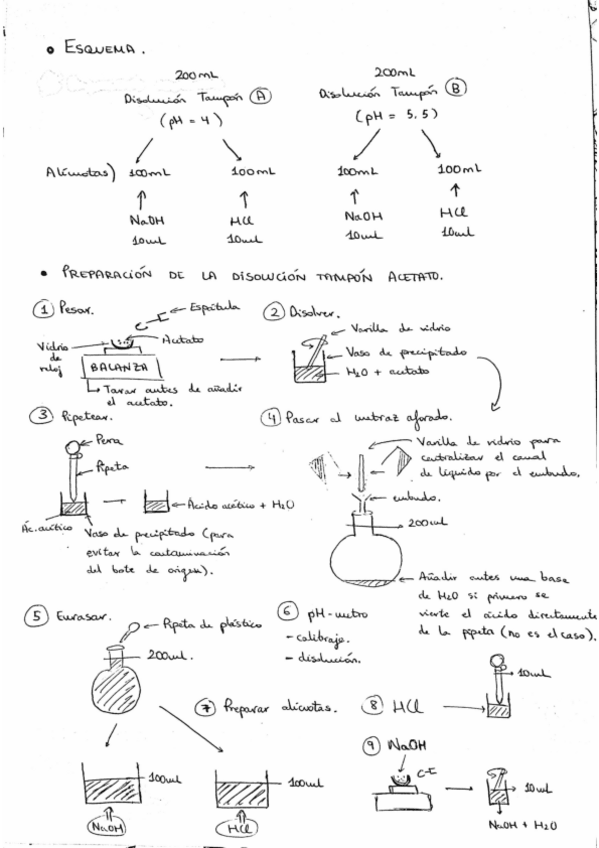 • ESQUEMA.
200mL
Disolución Tampón A
(pH = 4)
200mL
Disolución Tampón B
(pH = 5,5)
Alícuotas) 100mL 100mL 100mL 100mL
NaOH HCl NaOH HCl
10mL 10mL 10mL 10mL
• PREPARACIÓN DE LA DISOLUCIÓN TAMPÓN ACETATO.
1 Pesar.
Espátula
Acetato
Vidrio
de
reloj
BALANZA
Tarar antes de añadir
el acetato.
2 Disolver.
Varilla de vidrio
Vaso de precipitado
H2O + acetato
3 Pipetear.
Pera
Pipeta
Ác. acético
Ácido acético + H2O
Vaso de precipitado (para
evitar la contaminación
del bote de origen).
4 Pasar al matraz aforado.
Varilla de vidrio para
centralizar el canal
de líquido por el embudo.
embudo.
200mL
Añadir antes una base
de H2O si primero se
vierte el ácido directamente
de la pipeta (no es el caso).
5 Enrasar.
Pipeta de plástico
200mL.
6 pH-metro
- calibraje.
- disolución.
7 Preparar alícuotas.
100mL
100mL
NaOH
HCl
8 HCl
10mL
9 NaOH
10mL
NaOH + H2O